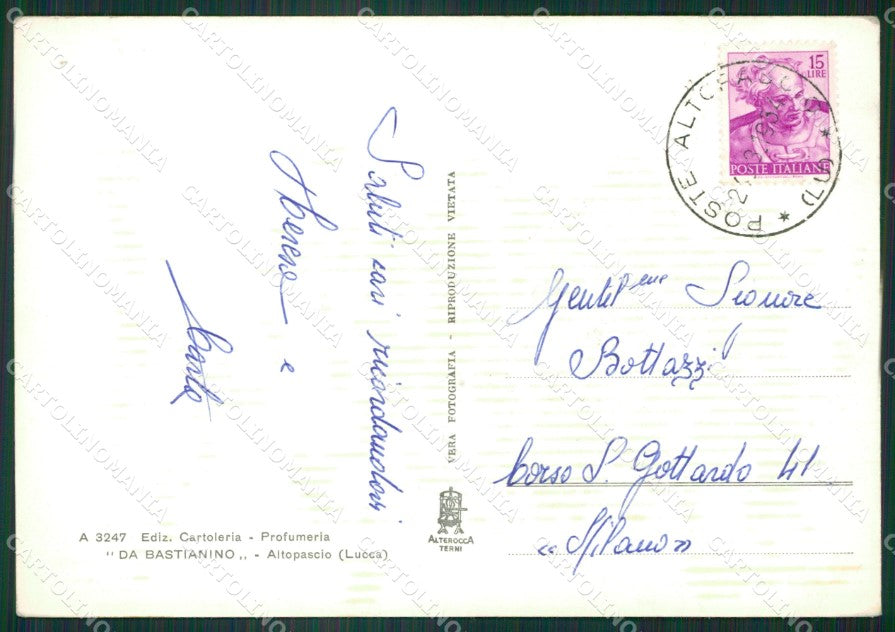 Saluti cari ricordandovi
e
Carlo
A 3247 Ediz. Cartoleria - Profumeria
" DA BASTIANINO „ - Altopascio (Lucca)
VERA FOTOGRAFIA - RIPRODUZIONE VIETATA
ALTEROCCA
TERNI
15
LIRE
POSTE ITALIANE
POSTE ALTOPASCIO * (LU) *
Gentil.me Signore
Bottazzi
Corso S. Gottardo 41
« Milano »
CARTOLINOMANIA